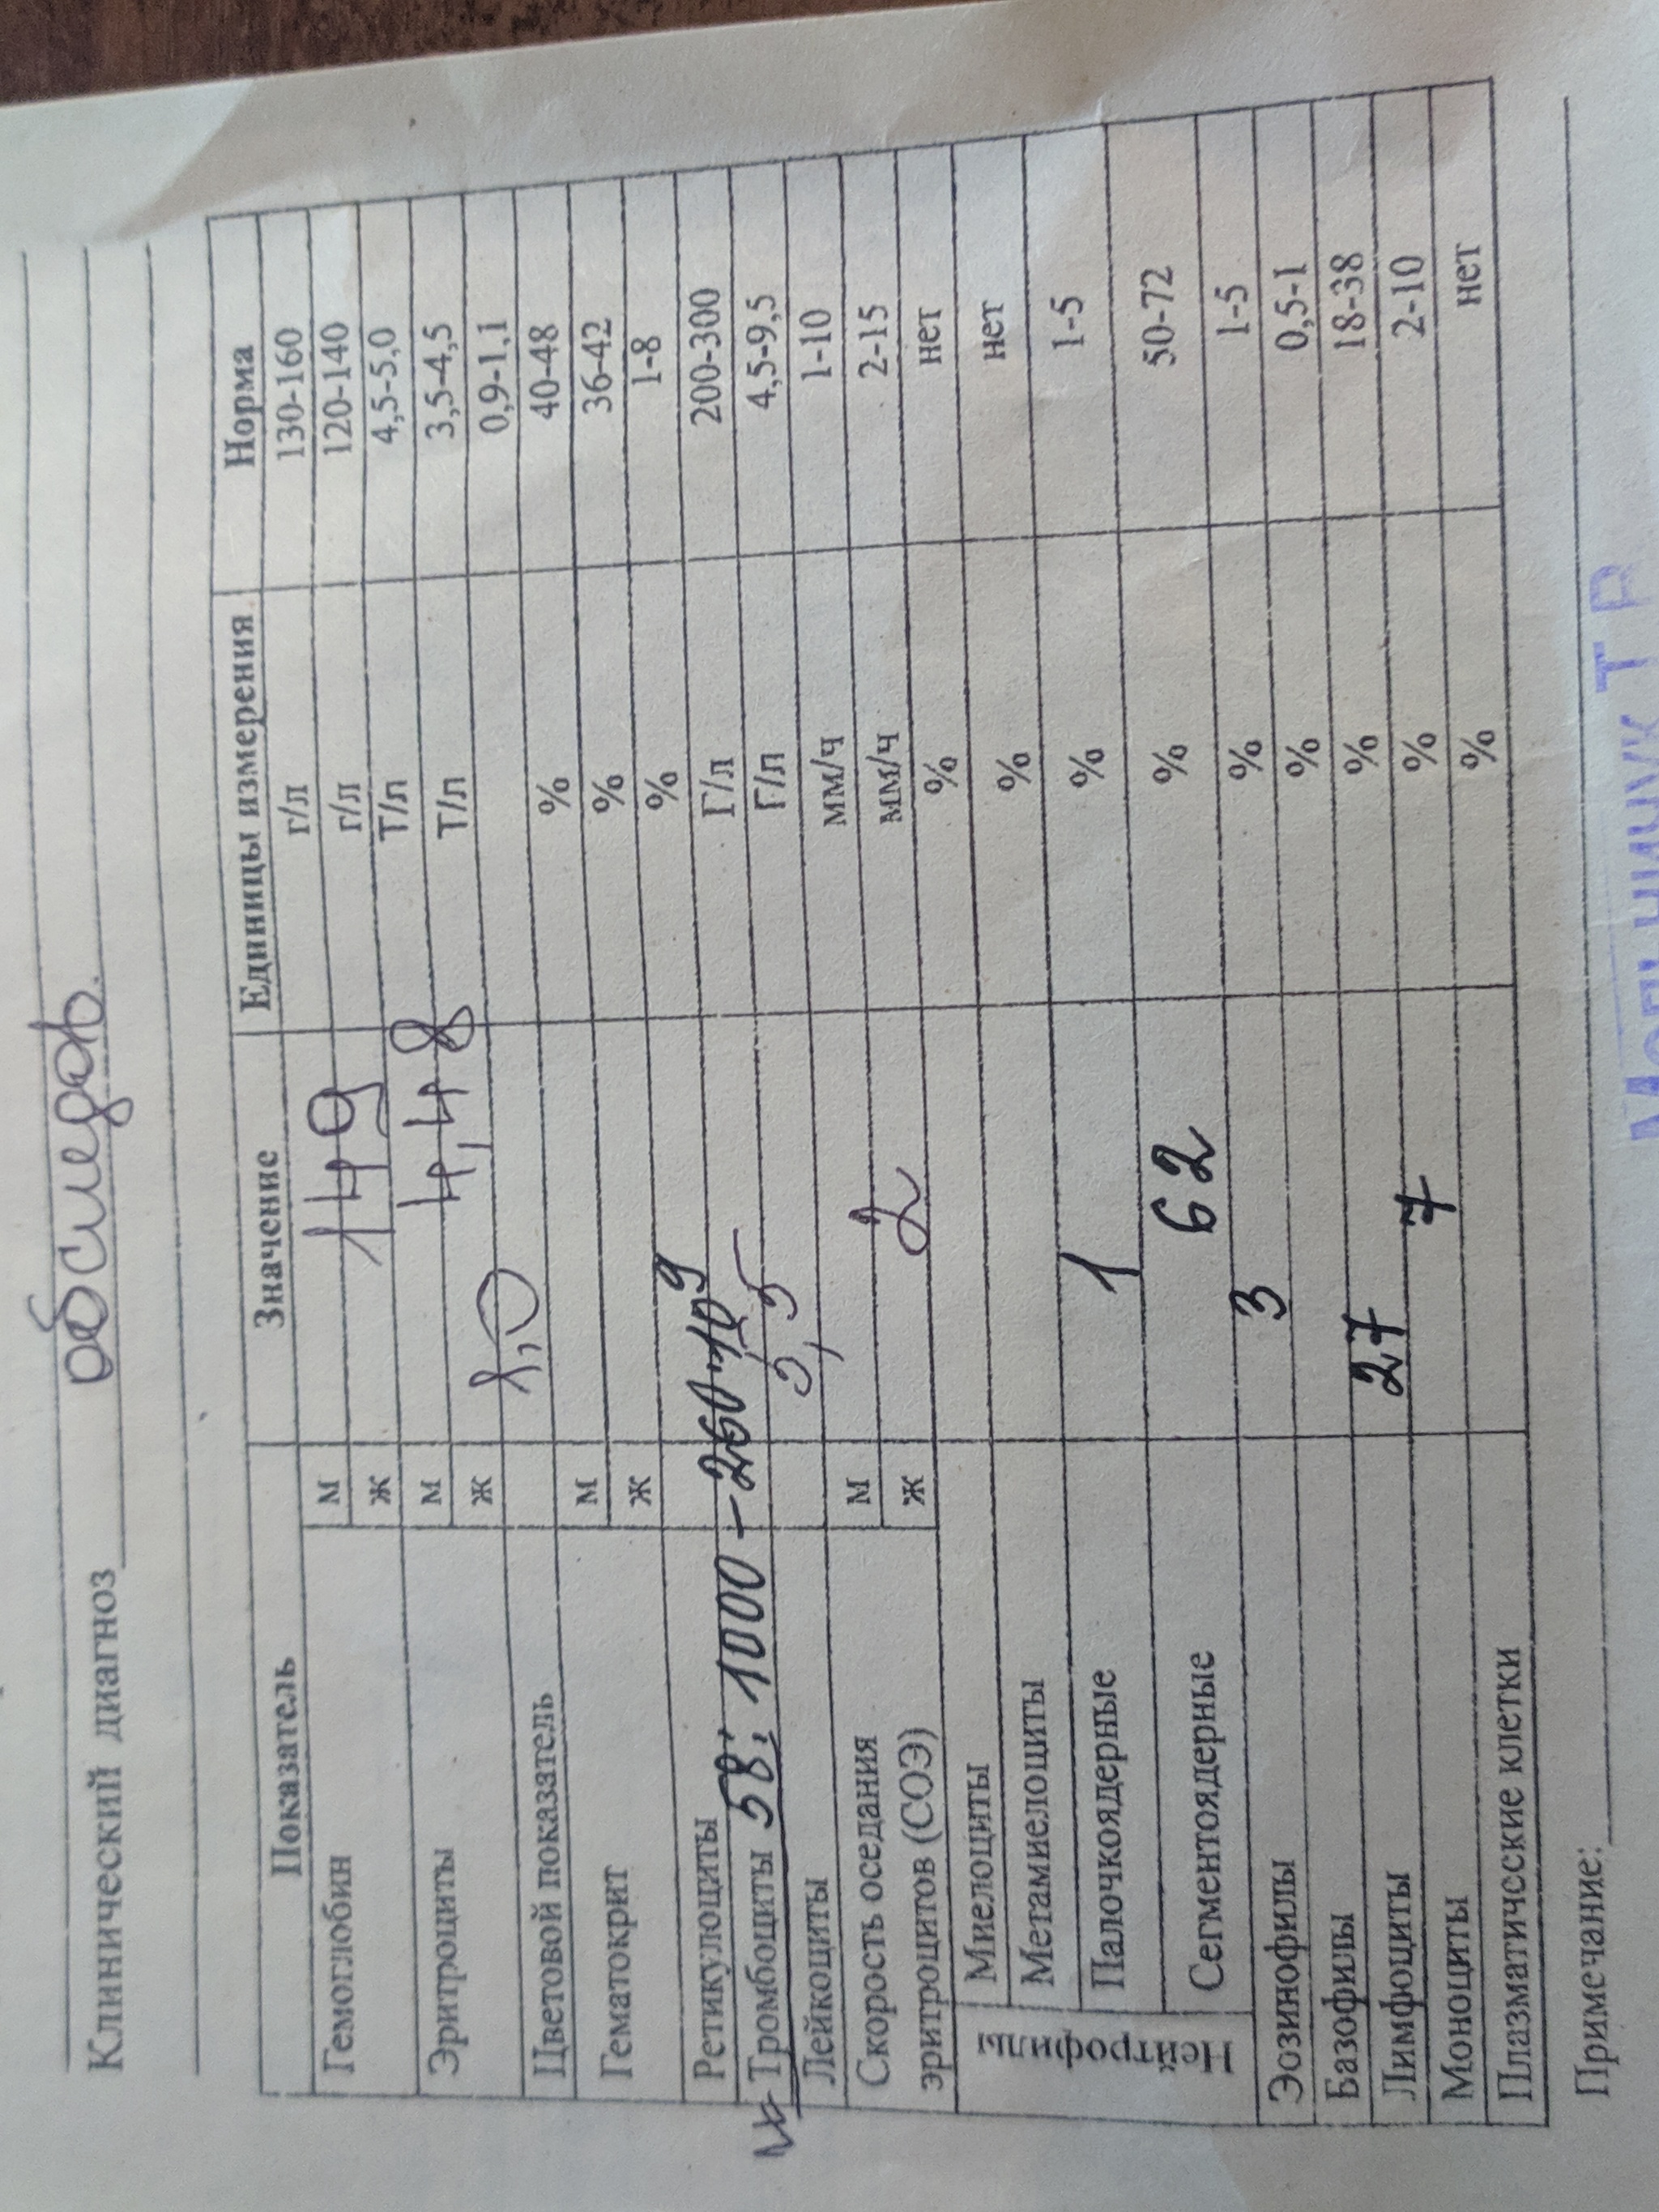 Клинический диагноз обследов.
Показатель Значение Единицы измерения Норма
Гемоглобин м 149 г/л 130-160
ж г/л 120-140
Эритроциты м 4,48 Т/л 4,5-5,0
ж Т/л 3,5-4,5
Цветовой показатель 1,0 0,9-1,1
Гематокрит м % 40-48
ж % 36-42
Ретикулоциты % 1-8
Тромбоциты 58:1000 - 260*10⁹ Г/л 200-300
Лейкоциты 5,5 Г/л 4,5-9,5
Скорость оседания м мм/ч 1-10
эритроцитов (СОЭ) ж 2 мм/ч 2-15
Нейтрофилы
Миелоциты % нет
Метамиелоциты % нет
Палочкоядерные 1 % 1-5
Сегментоядерные 62 % 50-72
Эозинофилы 3 % 1-5
Базофилы % 0,5-1
Лимфоциты 27 % 18-38
Моноциты 7 % 2-10
Плазматические клетки % нет
Примечание: